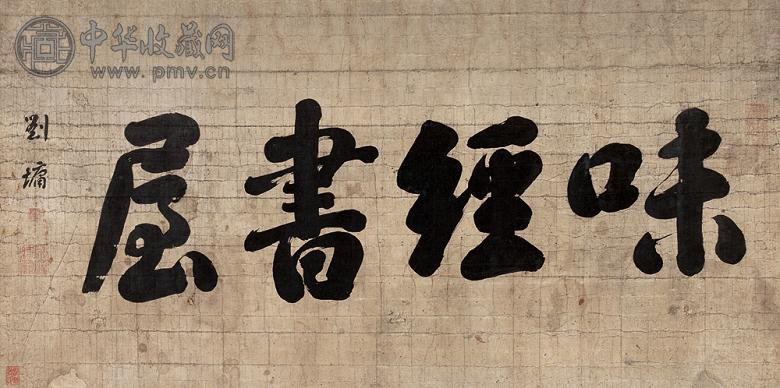 味經書屋
劉墉
中华收藏网
www.pmv.cn